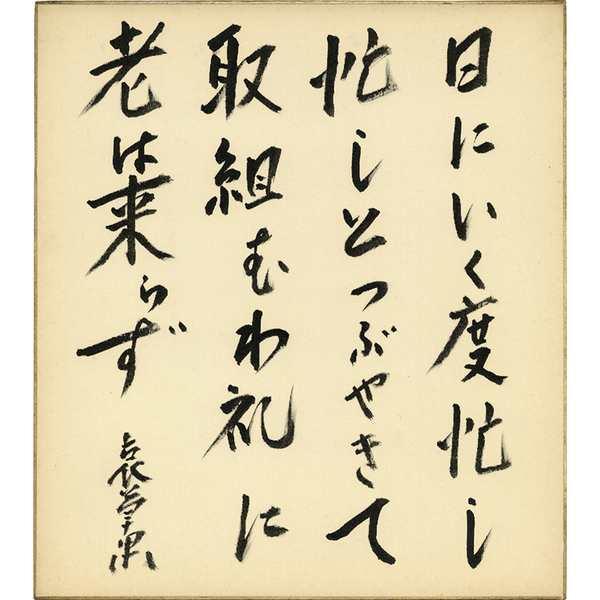 日にいく度忙し
忙しとつぶやきて
取組むわ礼に
老は来らず
哀草果